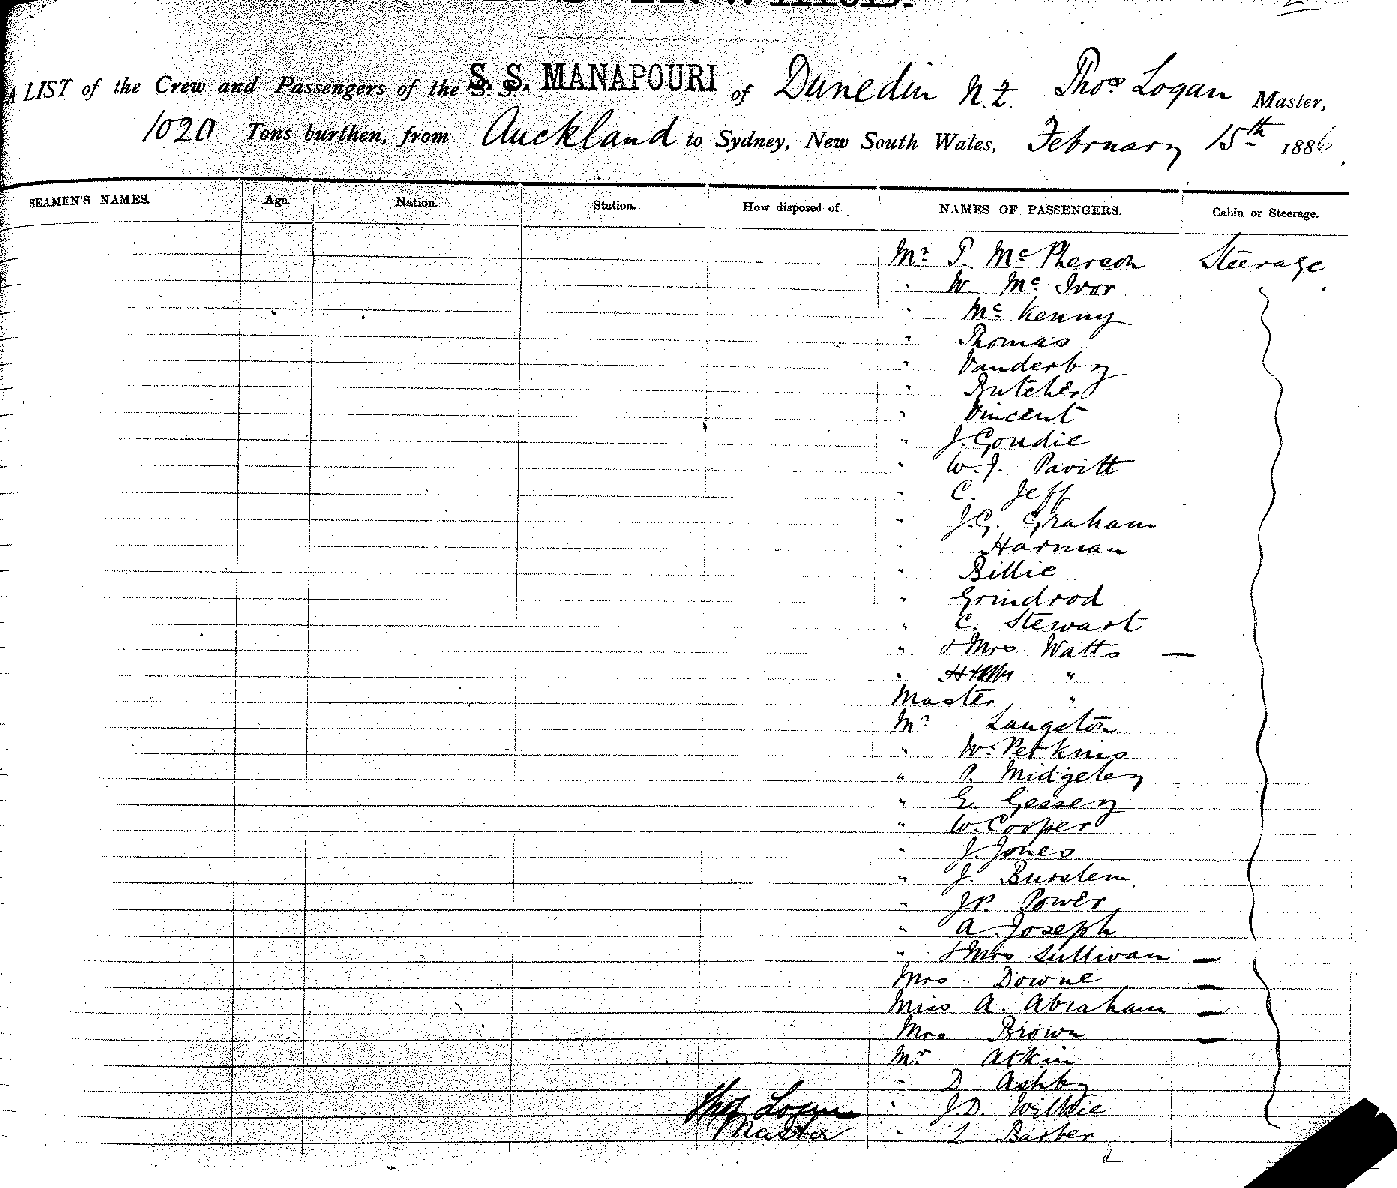 A LIST of the Crew and Passengers of the S. S. MANAPOURI of Dunedin N.Z. Thos Logan Master,
1020 Tons burthen, from Auckland to Sydney, New South Wales, February 15th 1886.
SEAMEN'S NAMES. Age. Nation. Station. How disposed of. NAMES OF PASSENGERS. Cabin or Steerage.
Mr McPherson Steerage
" W McIvor
" McKenny
" Thomas
" Vanderby
" Butcher
" Vincent
" J. Goudie
" W. J. Pavitt
" C. Jeff
" J.G. Graham
" Harman
" Billie
" Grindrod
" C. Stewart
" & Mrs Watts —
" "
Master "
Mr Langston
" W. Perkins
" P. Midgeley
" G. Gessey
" W. Cooper
" J. Jones
" J. Burslem
" J.P. Power
" A. Joseph
" & Mrs Sullivan —
Mrs Downe —
Miss A. Abraham —
Mrs Brown —
Mr Atkin
" D. Ashby
Thos Logan " J.D. Wilkie
Master " Barber